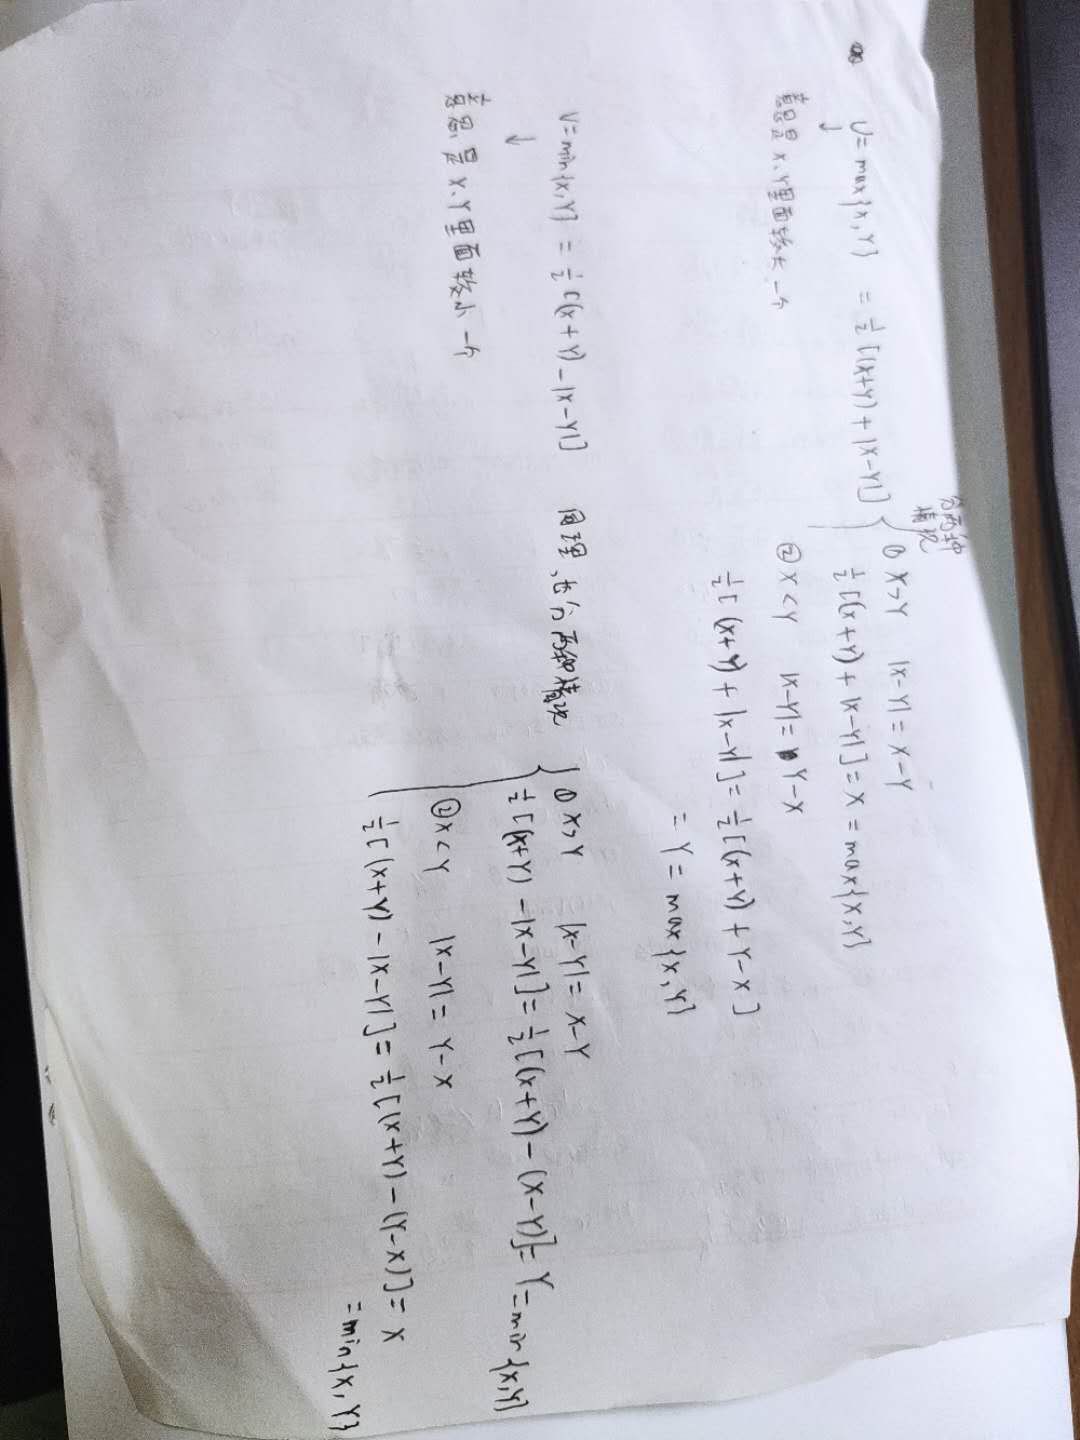 U=max{X,Y} = 1/2[(X+Y)+|X-Y|]
↓
意思是X、Y里面较大一个
分两种
情况
① X>Y |X-Y|= X-Y
1/2[(X+Y)+|X-Y|]=X=max{X,Y}
② X<Y |X-Y|= Y-X
1/2[(X+Y)+|X-Y|]=1/2[(X+Y)+Y-X]
=Y=max{X,Y}
V=min{X,Y} = 1/2[(X+Y)-|X-Y|] 同理、也分两种情况
↓
意思是X、Y里面较小一个
① X>Y |X-Y|= X-Y
1/2[(X+Y)-|X-Y|]=1/2[(X+Y)-(X-Y)]=Y=min{X,Y}
② X<Y |X-Y|= Y-X
1/2[(X+Y)-|X-Y|]=1/2[(X+Y)-(Y-X)]=X
=min{X,Y}